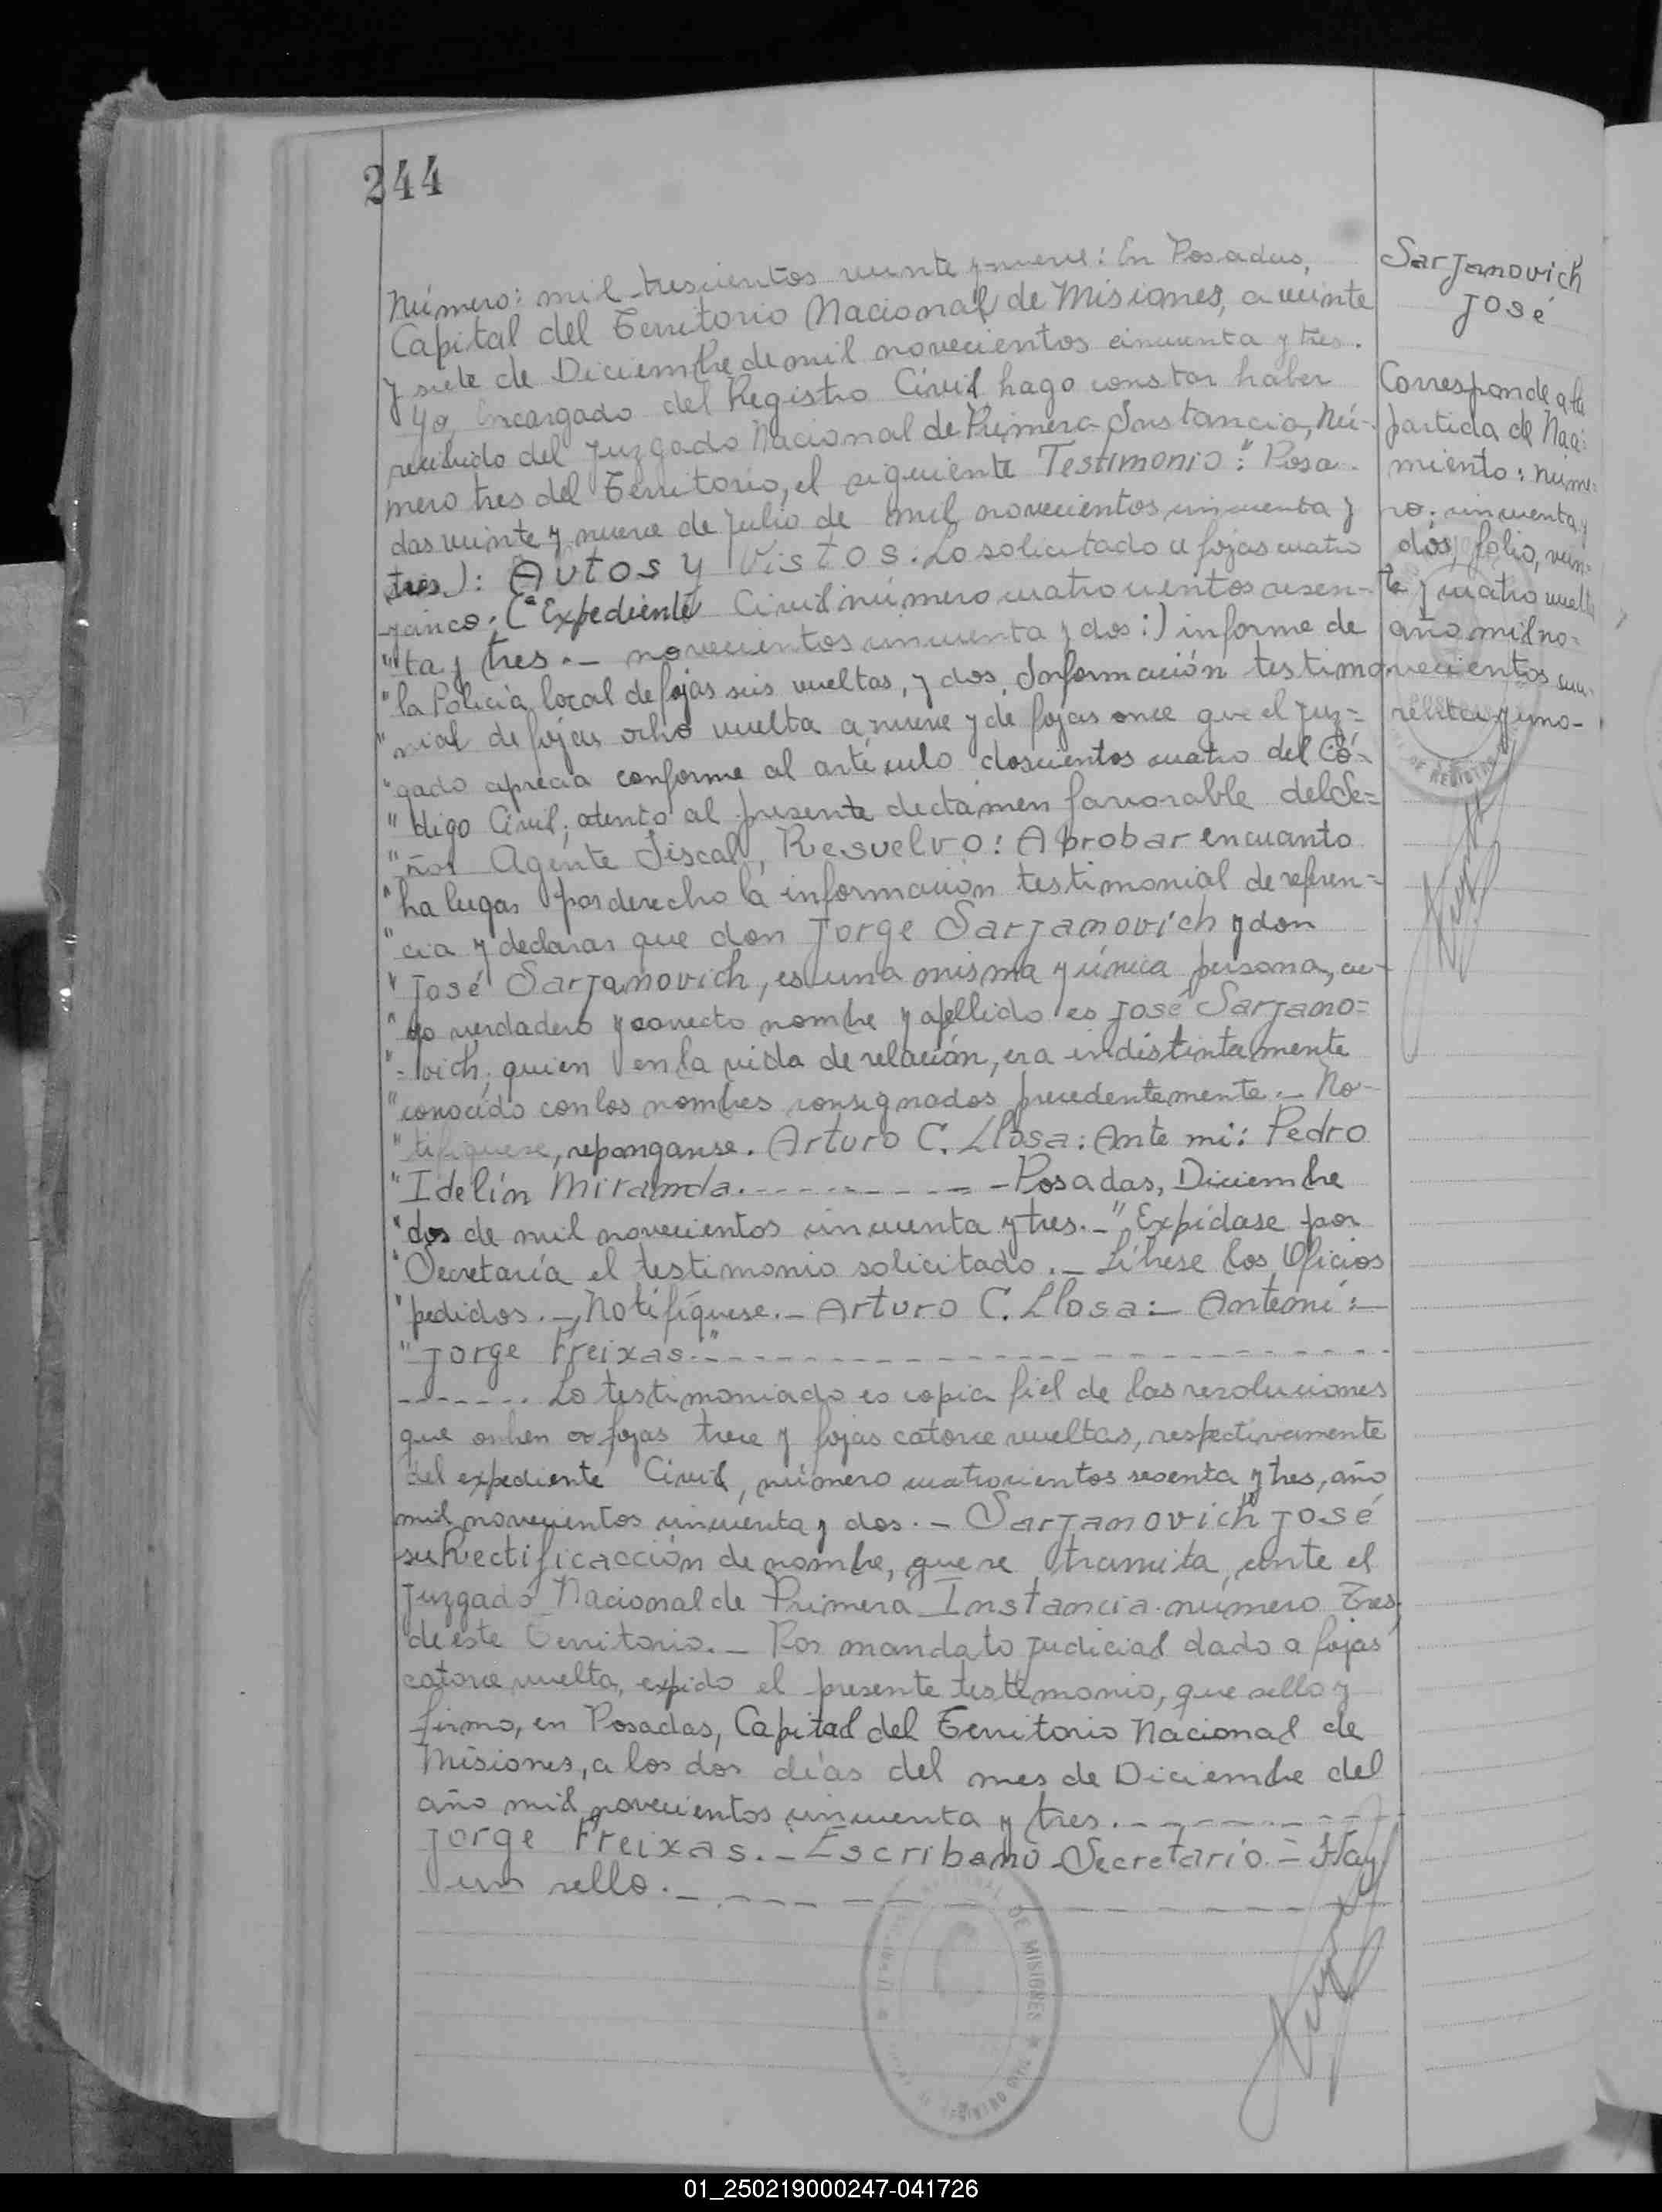 244
Número: mil trescientos veinte y nueve: En Posadas,
Capital del Territorio Nacional de Misiones, a veinte
y siete de Diciembre de mil novecientos cincuenta y tres.
Yo, Encargado del Registro Civil hago constar haber
recibido del Juzgado Nacional de Primera Instancia, Nú-
mero tres del Territorio, el siguiente Testimonio: " Posa-
das veinte y nueve de Julio de mil novecientos cincuenta y
tres): Autos y Vistos. Lo solicitado a fojas cuatro
y cinco; ("Expediente Civil número cuatrocientos sesen-
" ta y tres.- novecientos cincuenta y dos:) informe de
" la Policía local de fojas seis vueltas, y dos, Información testimo
" nial de fojas ocho vuelta a nueve y de fojas once que el Juz=
" gado aprecia conforme al artículo doscientos cuatro del Có-
" digo Civil; atento al presente dictámen favorable del Se=
" ñor Agente Fiscal, Resuelvo: Aprobar encuanto
" ha lugar por derecho la información testimonial de referen=
" cia y declarar que don Jorge Sarjanovich y don
" José Sarjanovich, es una misma y única persona, cu-
" yo verdadero y correcto nombre y apellido es José Sarjano=
"- vich, quien en la vida de relación, era indistintamente
" conocido con los nombres consignados precedentemente.- No-
" tifíquese, reponganse. Arturo C. Llosa: Ante mi: Pedro
" Idelín Miranda.---------- Posadas, Diciembre
" dos de mil novecientos cincuenta y tres.-" Expídase por
" Secretaría el testimonio solicitado.- Líbrese los Oficios
" pedidos.-, Notifíquese.- Arturo C. Llosa:- Antemí:-
" Jorge Freixas."--------------------
------. Lo testimoniado es copia fiel de las resoluciones
que obren a fojas trece y fojas catorce vueltas, respectivamente
del expediente Civil, número cuatrocientos sesenta y tres, año
mil novecientos cincuenta y dos.- Sarjanovich José
su Rectificacción de nombre, que se tramita, ante el
Juzgado Nacional de Primera Instancia número Tres,
de este Territorio.- Por mandato judicial dado a fojas
catorce vuelta, expido el presente testimonio, que sello y
firmo, en Posadas, Capital del Territorio Nacional de
Misiones, a los dos días del mes de Diciembre del
año mil novecientos cincuenta y tres.----------
Jorge Freixas.- Escribano-Secretario.- Hay
un sello.-----------
Sarjanovich
José
Corresponde a la
partida de Naci-
miento: núme=
ro: cincuenta y
dos, folio, vein-
te y cuatro vuelta
año mil no-
vecientos cua-
renta y uno-
DE REGISTRO
DE MISIONES
01_250219000247-041726